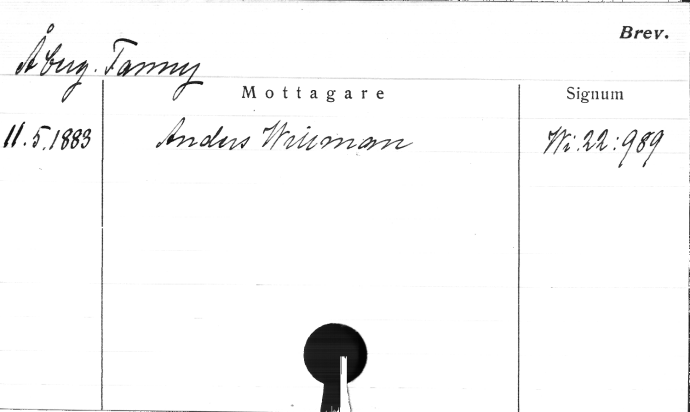 Brev.
Åberg. Fanny
Mottagare Signum
11.5.1883 Anders Wiseman Wi.22:989